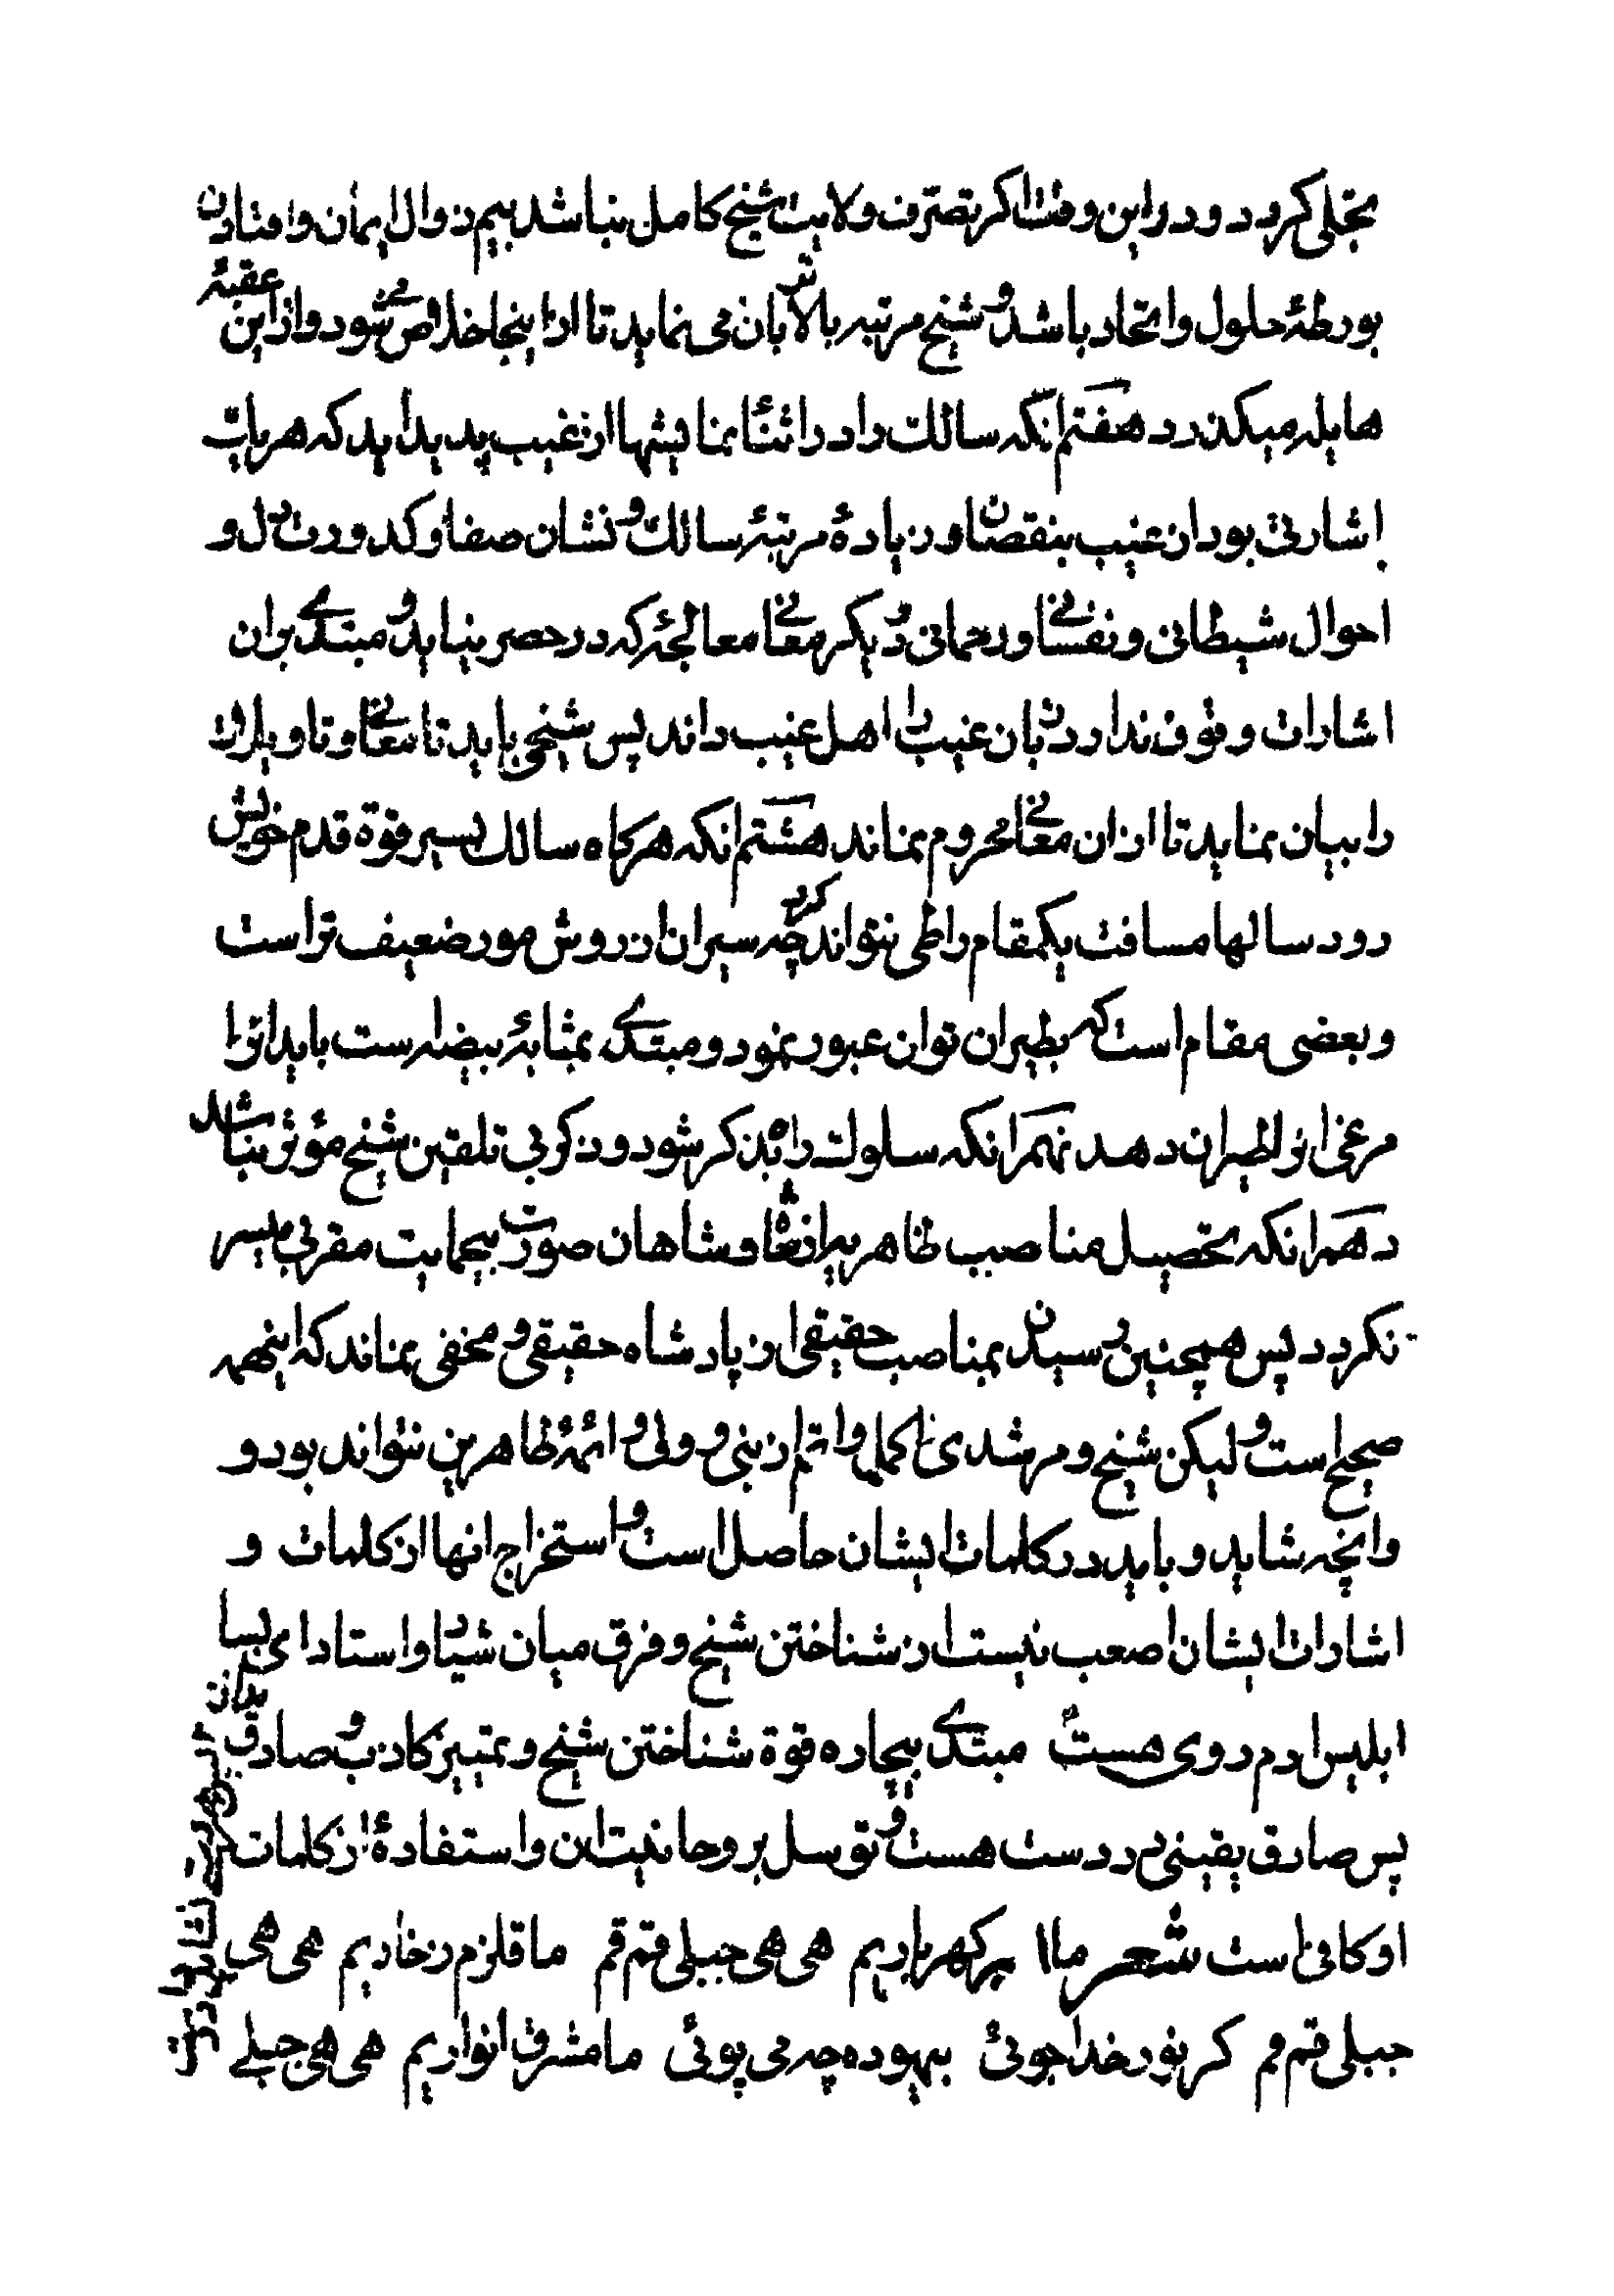 تجلی کرد و در این وقت اگر تصرف ولایت شیخ کامل نباشد بیم زوال ایمان و افتادن
بورطهٔ حلول و اتحاد باشد و شیخ مرتبه بالاتر بآن می نماید تا از اینجا خلاص می شود و از این عقبهٔ
هایله میگذرد هفتم آنکه سالک را در اثنا نمایشها از غیب پدید آید که هر یک
اشارتی بود از غیب بنقصان و زیادهٔ مرتبهٔ سالک و نشان صفا و کدورت دل و
احوال شیطانی و نفسانی و رحمانی و دیگر معانی معالجهٔ که در حصر نیاید و مبتدی بر آن
اشارات وقوف ندارد زبان غیب را اهل غیب داند پس شیخی باید تا معانی و تاویلات
را بیان نماید تا از آن معانی محروم نماند هشتم آنکه هرگاه سالک بسیر قوة قدم خویش
رود سالها مسافت یکمقام را طی نتواند کرد چه سیر آن از روش مور ضعیف تر است
و بعضی مقام است که بطیران توان عبور نمود و مبتدی بمثابهٔ بیضه است باید او را
مرغی او طیران دهد نهم آنکه سلوک راه بذکر شود و ذکر بی تلقین شیخ مؤثر نباشد
دهم آنکه تحصیل مناصب ظاهریه از شاه و شاهان صورت بیحمایت مقربی میسر
نگردد پس همچنین رسیدن بمناصب حقیقی از پادشاه حقیقی و مخفی نماند که اینهمه
صحیح است و لیکن شیخ و مرشدی اکمل و اتم از نبی و ولی و ائمهٔ طاهرین نتواند بود و
و آنچه شاید و باید در کلمات ایشان حاصل است و استخراج آنها از کلمات و
اشارات ایشان اصعب نیست از شناختن شیخ و فرق میان شیاد و استاد ای بسا
ابلیس آدم روی هست مبتدی بیچاره قوة شناختن شیخ و تمییز کاذب و صادق
پس صادق یقینی در دست هست و توسل بروحانیت آن و استفادهٔ از کلمات
او کافی است شعر ما ابر گهر باریم هی هی جبلی قم قم ما قلزم زخاریم هی هی
جبلی قم قم گر نور خدا جوئی بیهوده چه می پوئی ما مشرق انواریم هی هی جبلی